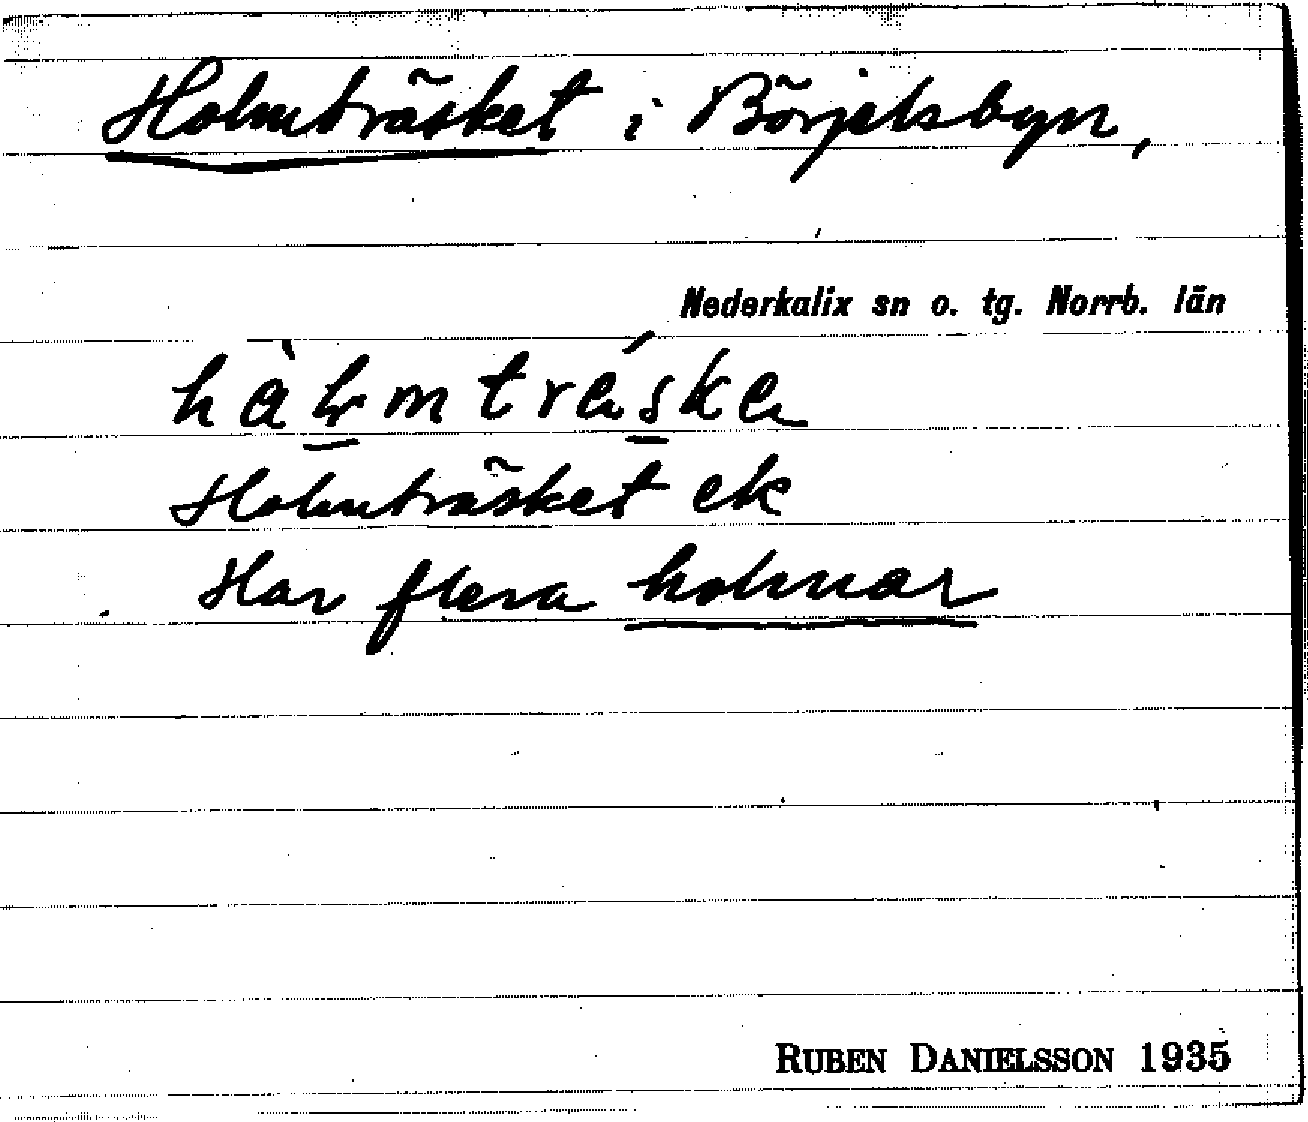 Holmträsket i Börjelsbyn,
Nederkalix sn o. tg. Norrb. län
Holmträsket ek
Har flera holmar
RUBEN DANIELSSON 1935